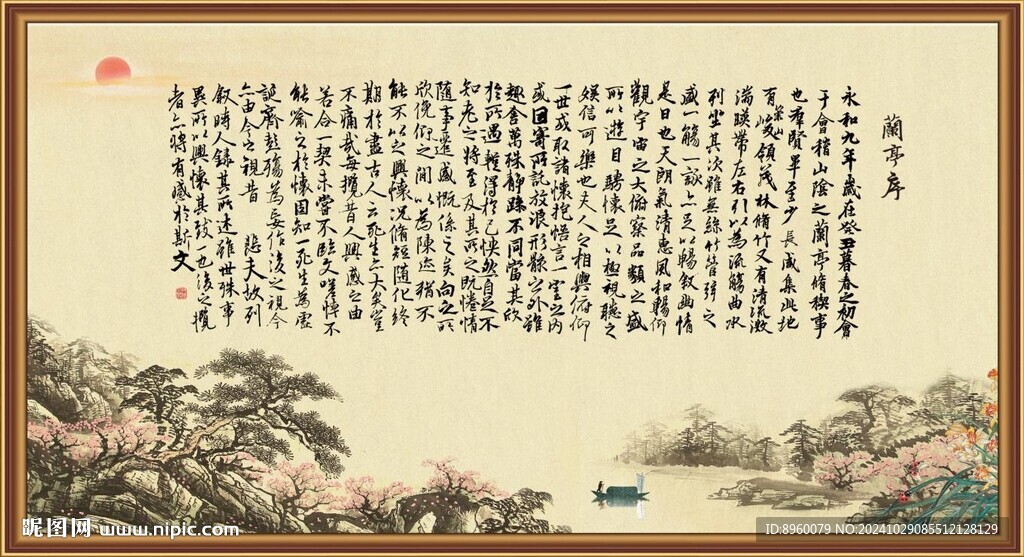 蘭亭序
永和九年歲在癸丑暮春之初會
于會稽山陰之蘭亭脩稧事
也羣賢畢至少長咸集此地
有崇山峻領茂林脩竹又有清流激
湍暎帶左右引以為流觴曲水
列坐其次雖無絲竹管弦之
盛一觴一詠亦足以暢叙幽情
是日也天朗氣清惠風和暢仰
觀宇宙之大俯察品類之盛
所以遊目騁懷足以極視聽之
娛信可樂也夫人之相與俯仰
一世或取諸懷抱悟言一室之內
或因寄所託放浪形骸之外雖
趣舍萬殊靜躁不同當其欣
於所遇蹔得於己怏然自足不
知老之將至及其所之既惓情
隨事遷感慨係之矣向之所
欣俛仰之閒以為陳迹猶不
能不以之興懷況脩短隨化終
期於盡古人云死生亦大矣豈
不痛哉每攬昔人興感之由
若合一契未嘗不臨文嗟悼不
能喻之於懷固知一死生為虛
誕齊彭殤為妄作後之視今
亦由今之視昔 悲夫故列
叙時人錄其所述雖世殊事
異所以興懷其致一也後之攬
者亦將有感於斯文
昵图网 www.nipic.com
ID:8960079 NO:20241029085512128129